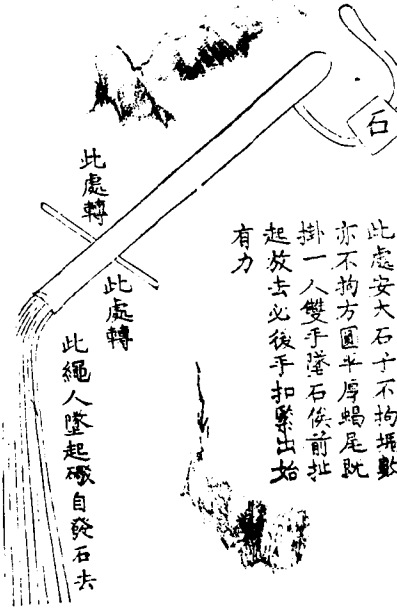 石
此處安大石子不拘塊數
亦不拘方圓半厚蝎尾既
掛一人雙手墜石俟前扯
起放去必後手扣緊出始
有力
此處轉
此處轉
此繩人墜起礮自發石去